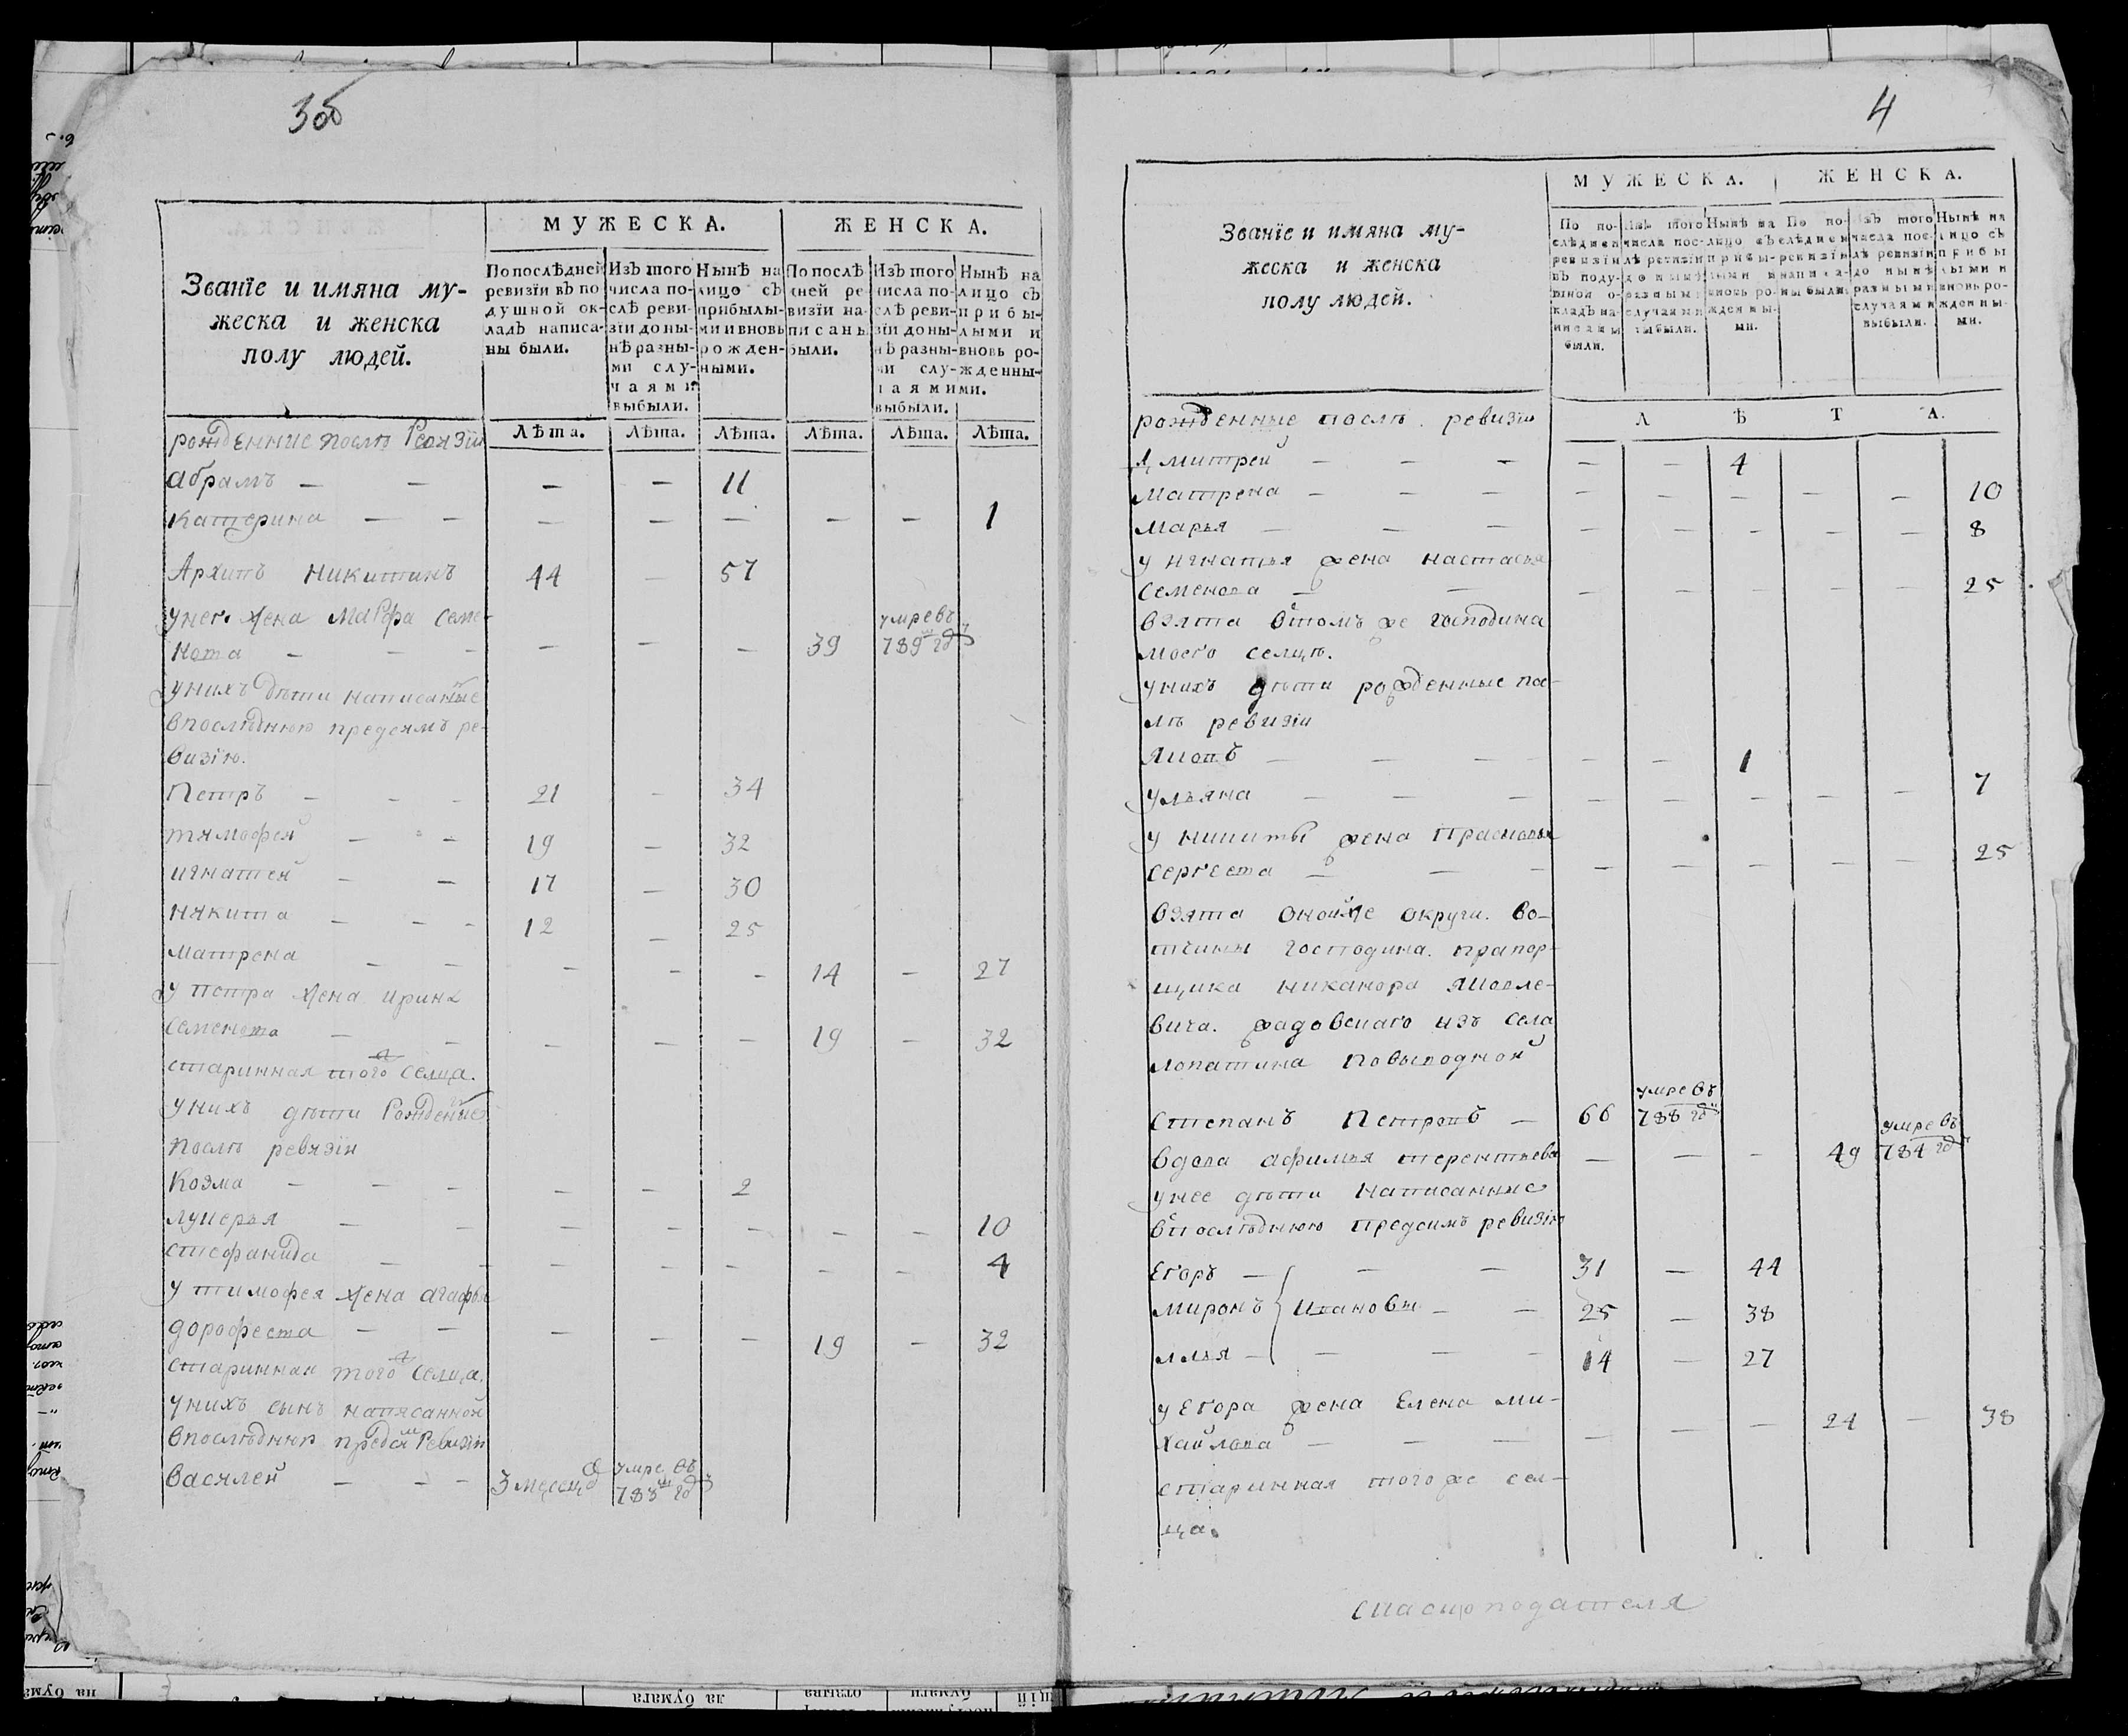 3об
Званїе и имяна му-
жеска и женска
полу людей.
МУЖЕСКА.
ЖЕНСКА.
По послѣдней
ревизїи въ по
душной ок-
ладъ написа-
ны были.
Изъ того
числа по-
слѣ реви-
зїи до ны-
нѣ разны-
ми слу-
чаями
выбыли.
Нынѣ на
лицо съ
прибылы-
ми и вновь
рожден-
ными.
По послѣ
дней ре-
визїи на-
писаны
были.
Изъ того
числа по-
слѣ реви-
зїи до ны-
нѣ разны-
ми слу-
чаями
выбыли.
Нынѣ на
лицо съ
прибы-
лыми и
вновь ро-
жденны-
ми.
Лѣта. Лѣта. Лѣта. Лѣта. Лѣта. Лѣта.
рожденние послѣ Ревизїи
абрамъ — — — — 11
катерина — — — — — — — 1
Архипъ никитинъ 44 — 57
унего жена марфа семе-
нова — — — — — — 39 умре въ 789м году
унихъ дѣти написаные
впослѣднюю предсимъ ре-
визїю.
Петръ — — — 21 — 34
тимофей — — 19 — 32
игнатей — — 17 — 30
никита — — — 12 — 25
матрена — — — — — 14 — 27
у петра жена ирина
семенова — — — — — 19 — 32
старинная того селца.
унихъ дѣти Рожденые
послѣ ревизїи
козма — — — — — 2
лукерья — — — — — — — 10
стефанида — — — — — — — 4
у тимофея жена агафья
дорофеева — — — — — 19 — 32
старинная того селца.
унихъ сынъ написанной
впослѣднюю предсим Ревизїю
василей — — — 3 месяца умре въ 788м году
4
Званїе и имяна му-
жеска и женска
полу людей.
МУЖЕСКА.
ЖЕНСКА.
По по-
слѣдней
ревизїи
въ поду-
шной о-
кладъ на-
писаны
были.
Изъ того
числа пос-
лѣ ревизїи
до нынѣ
разными
случаями
выбыли.
Нынѣ на
лицо съ
прибы-
лыми и
вновь ро-
жденны-
ми.
По по-
слѣдней
ревизїи
написа-
ны были.
Изъ того
числа пос-
лѣ ревизїи
до нынѣ
разными
случаями
выбыли.
Нынѣ на
лицо съ
прибы
лыми и
вновь ро-
жденны-
ми.
ЛѢТА.
рожденные послѣ ревизїи
Дмитрей — — — — — 4
матрена — — — — — — — — 10
марья — — — — — — — — 8
у игнатья жена настасья
семенова — — — — — — — 25
взята втомъ же господина
моего селцѣ.
унихъ дѣти рожденные пос-
лѣ ревизїи
яковъ — — — — — 1
ульяна — — — — — — — — 7
у никиты жена прасковья
сергеева — — — — — — — — 25
взята онойже округи. во-
тчины господина. прапор-
щика никанора яковле-
вича. жадовскаго изъ села
лопатина повыводной
степанъ Петровъ — 66 умре въ 788 году
вдова афимья терентьева — — — 49 умре въ 784 году
унее дѣти написанные
впослѣднюю предсимъ ревизїю
Егоръ — — — 31 — 44
миронъ Ивановы — — 25 — 38
илья — — — — 14 — 27
у Егора жена Елена ми-
хайлова — — — — — — 24 — 38
старинная того же сел-
ца.